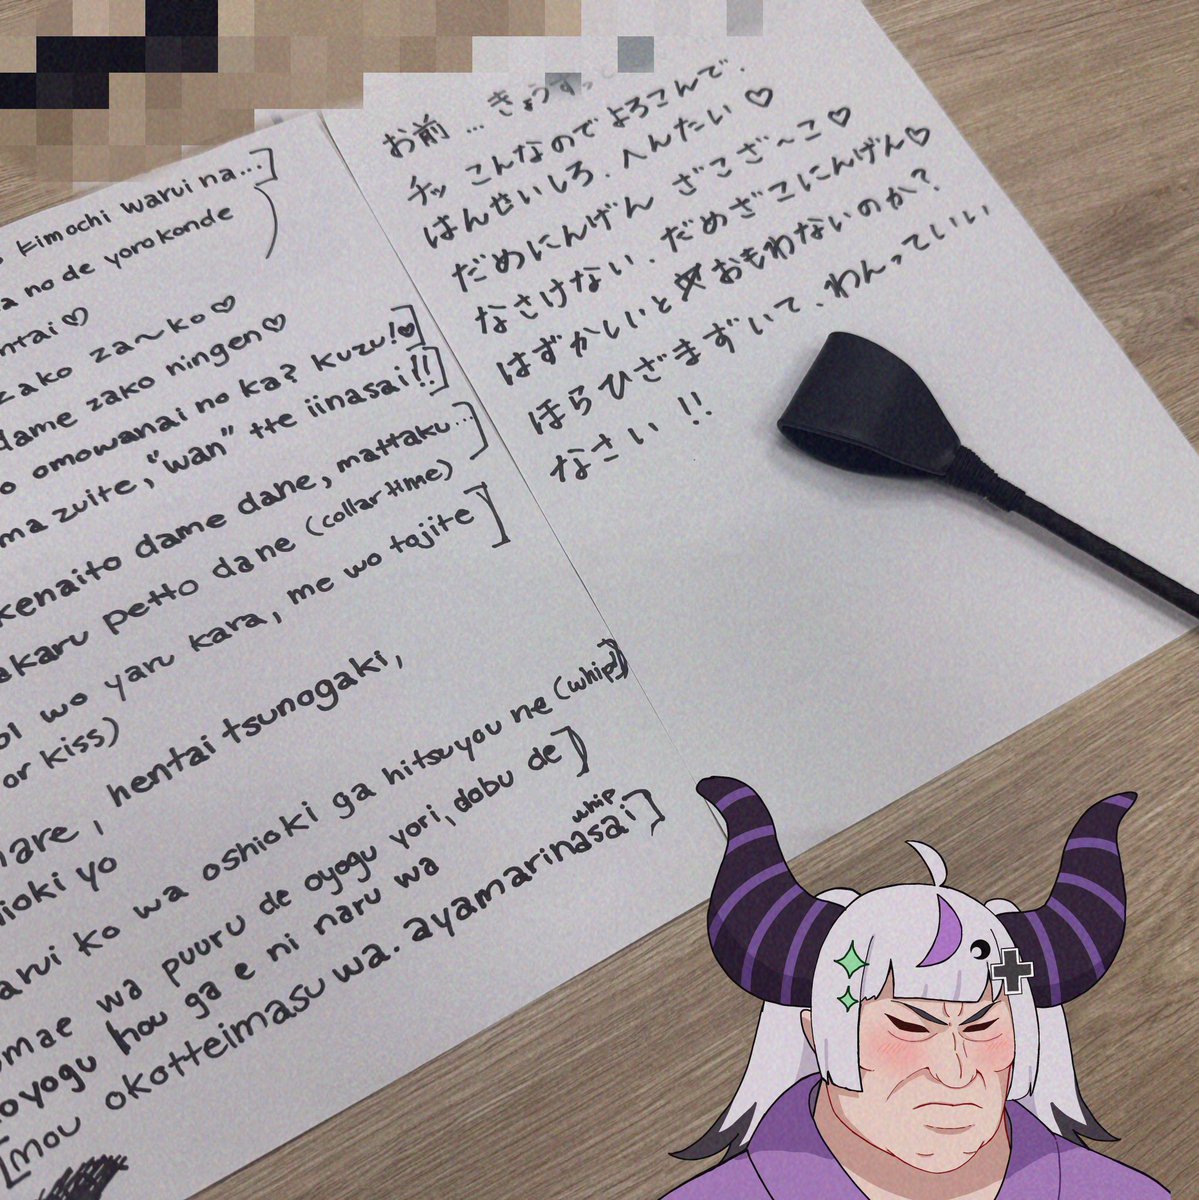 kimochi warui na...]
na no de yorokonde
ntai♡
zako za~ko♡
dame zako ningen♡
o omowanai no ka? kuzu!♥]
ma zuite, "wan" tte iinasai!!]
kenaito dame dane, mattaku...]
akaru petto dane (collar time)
wo yaru kara, me wo tojite]
or kiss)
are, hentai tsunogaki,
ioki yo
arui ko wa oshioki ga hitsuyou ne (whip)]
omae wa puuru de oyogu yori, dobu de]
oyogu hou ga e ni naru wa
whip
[mou okotteimasu wa. ayamarinasai]
お前...きょうずっと
チッ こんなのでよろこんで.
はんせいしろ、へんたい♡
だめにんげん ざこざ〜こ♡
なさけない、だめざこにんげん♡
はずかしいとおもわないのか?
ほらひざまずいて、わんっていい
なさい!!